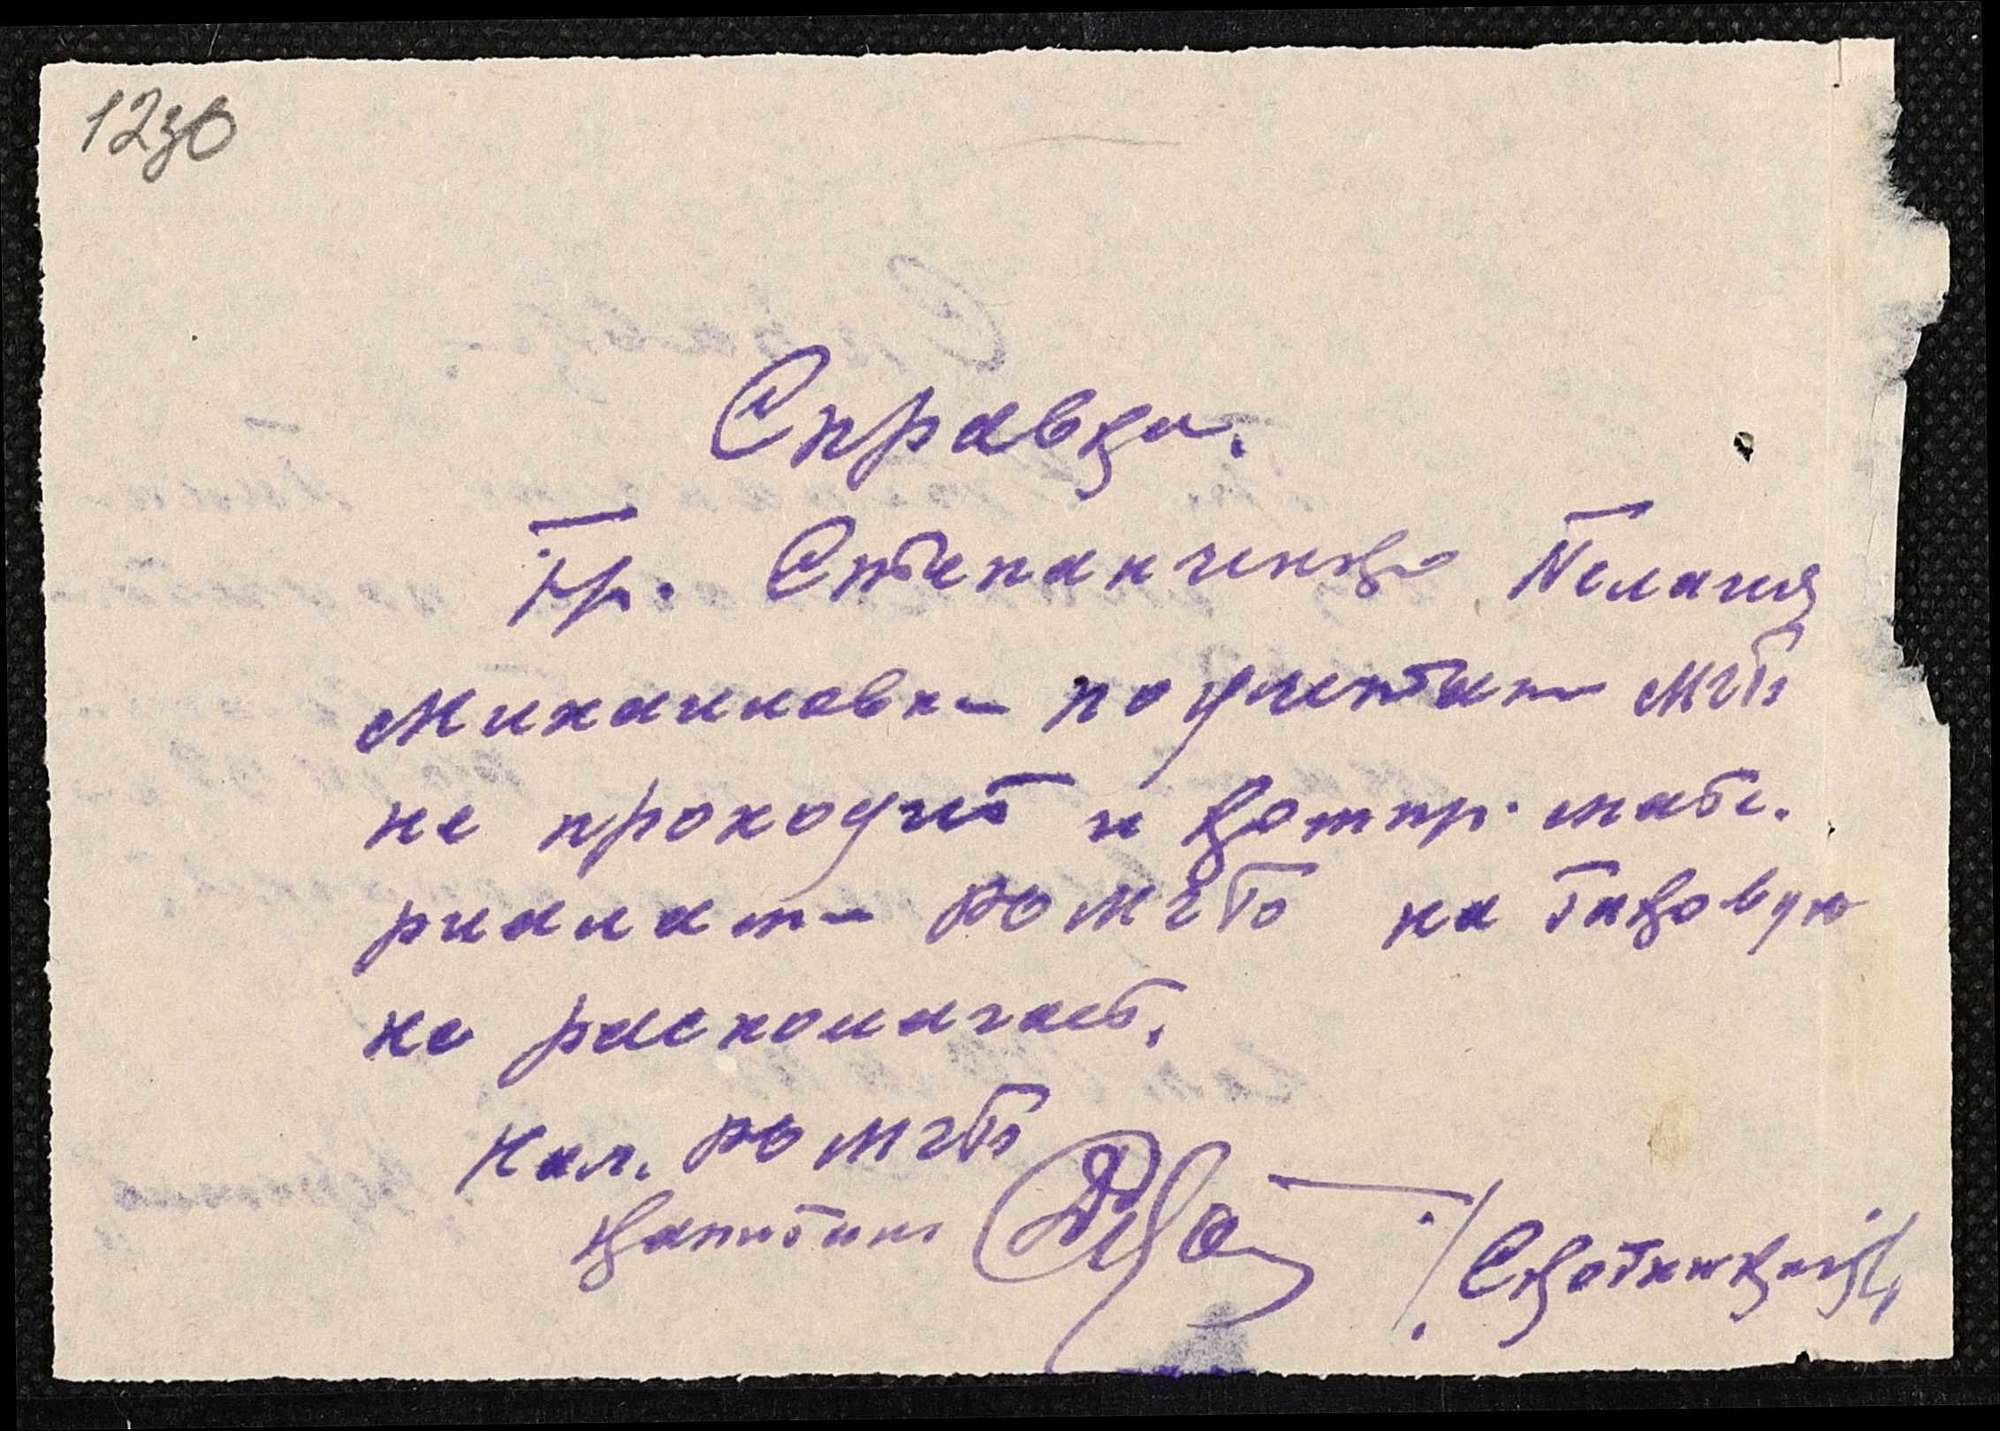 1230
Справка.
Гр. Степанченко Пелагия
Михаиловна по учетам МГБ
не проходит и компр. мате-
риалам РО МГБ на таковую
не располагает.
Нач. РО МГБ
капитан
/Скотницкий/